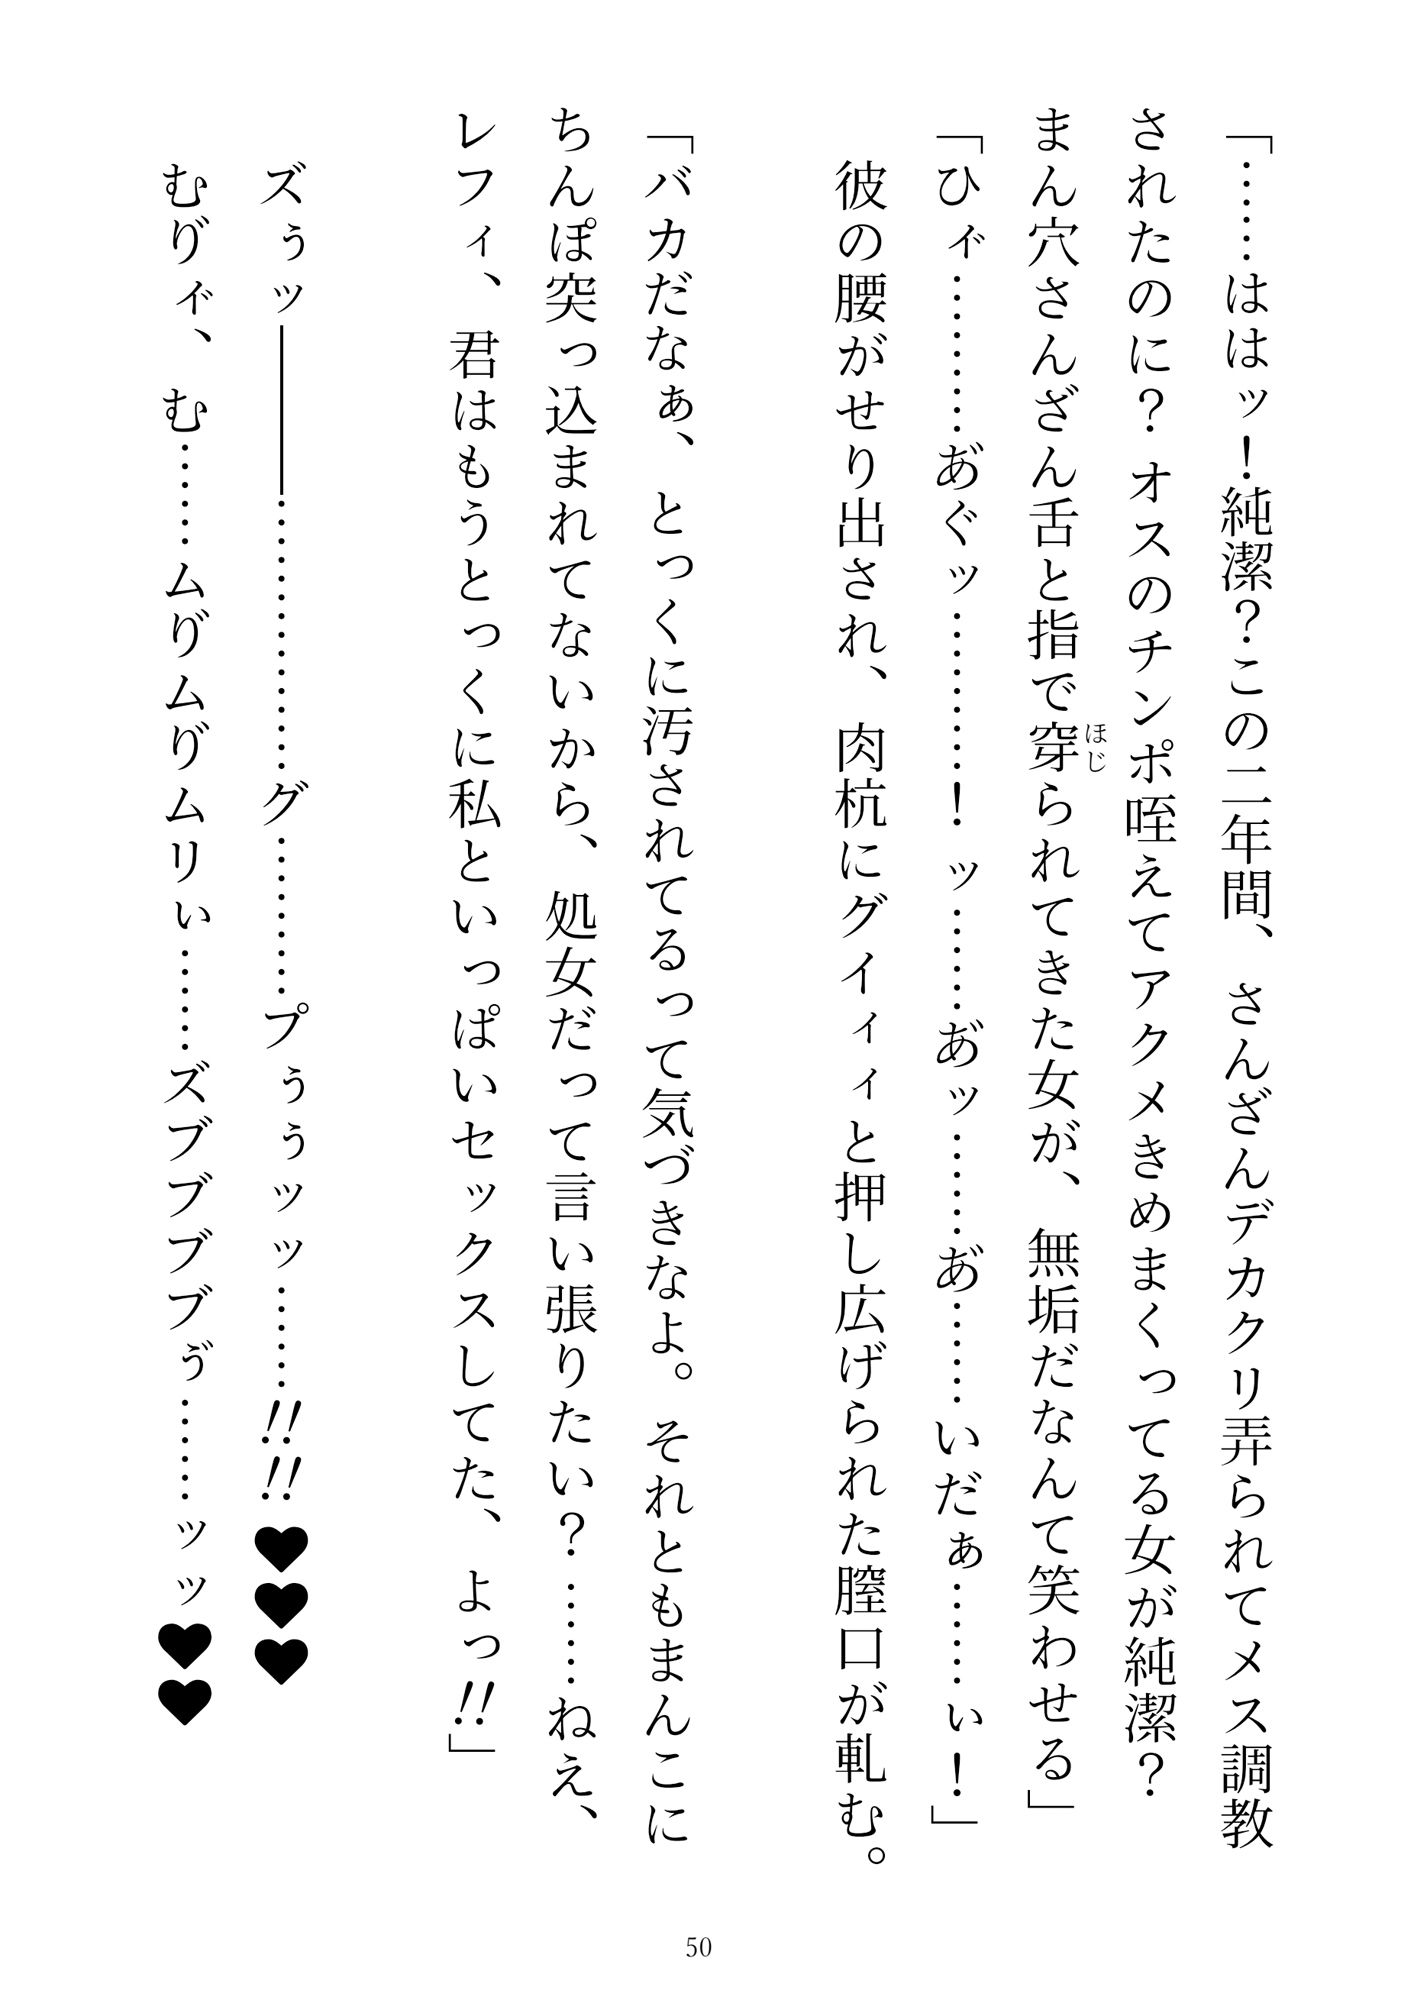 「……ははッ！純潔？この二年間、さんざんデカクリ弄られてメス調教
されたのに？オスのチンポ咥えてアクメきめまくってる女が純潔？
まん穴さんざん舌と指で穿られてきた女が、無垢だなんて笑わせる」
ほじ
「ひィ゙…………あ゙ぐッ…………！ッ……あ゙ッ……あ゙……いだぁ……ぃ！」
彼の腰がせり出され、肉杭にグイィィと押し広げられた膣口が軋む。
「バカだなぁ、とっくに汚されてるって気づきなよ。それともまんこに
ちんぽ突っ込まれてないから、処女だって言い張りたい？……ねえ、
レフィ、君はもうとっくに私といっぱいセックスしてた、よっ‼」
ズぅッ───………………グ…………プぅぅッッ……‼‼♥♥♥
むり゙ィ゙、む……ムリ゙ムリ゙ムリぃ……ズブブブブぅ゙……ッッ♥♥
50